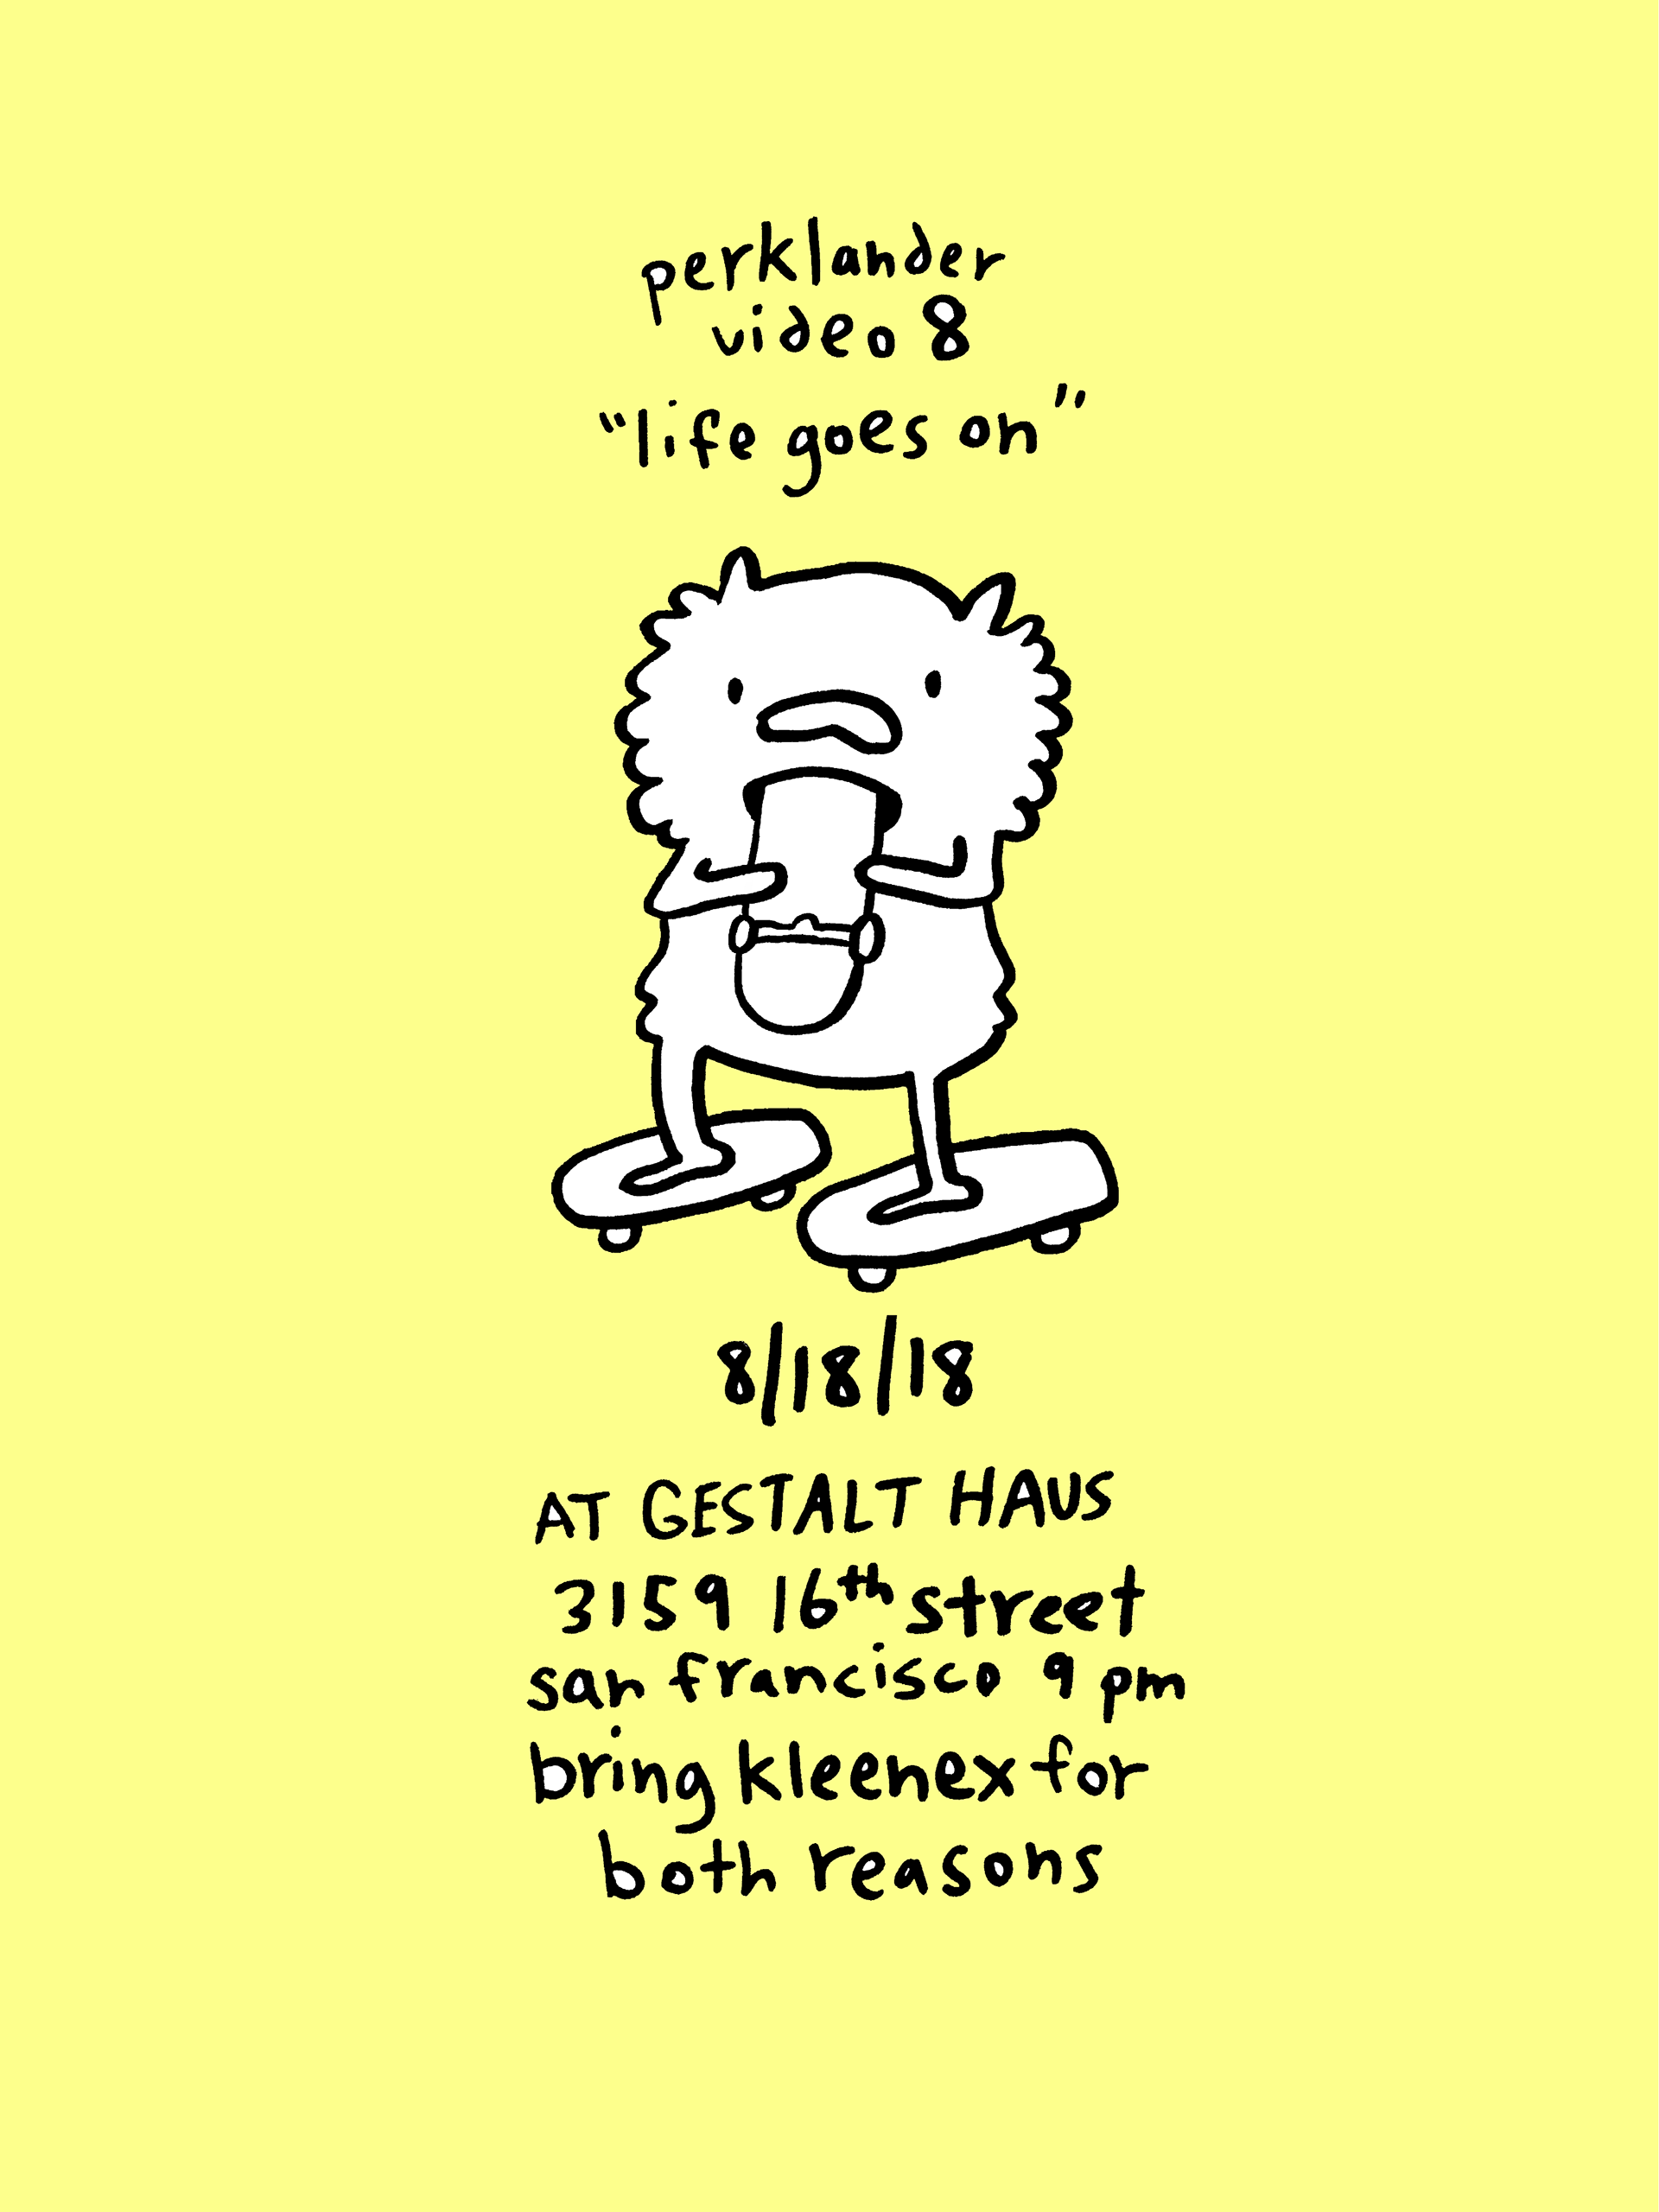 perklander
video 8
"life goes on"
8/18/18
AT GESTALT HAUS
3159 16th street
san francisco 9 pm
bring kleenex for
both reasons